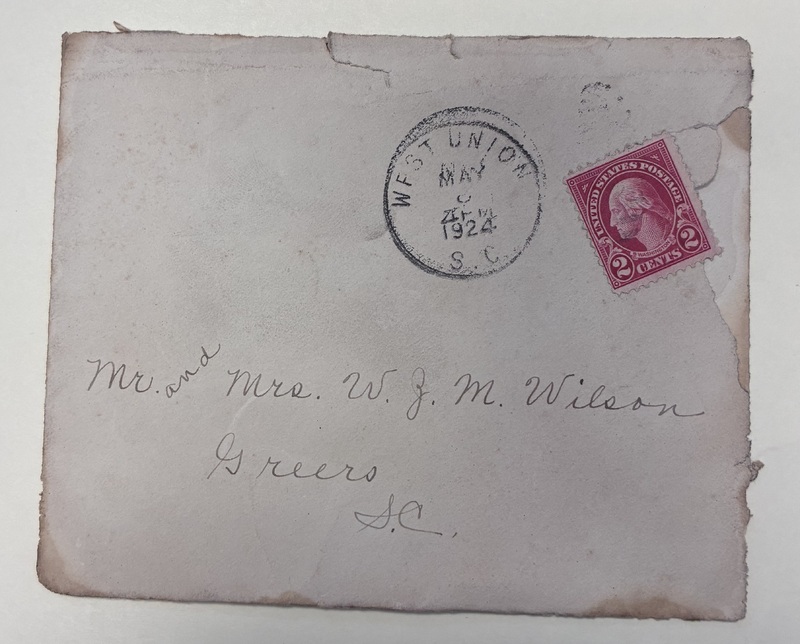 WEST UNION
MAY
4 PM
1924
S. C.
UNITED STATES POSTAGE
WASHINGTON
2 CENTS 2
Mr. and Mrs. W. J. M. Wilson
Greers
S.C.